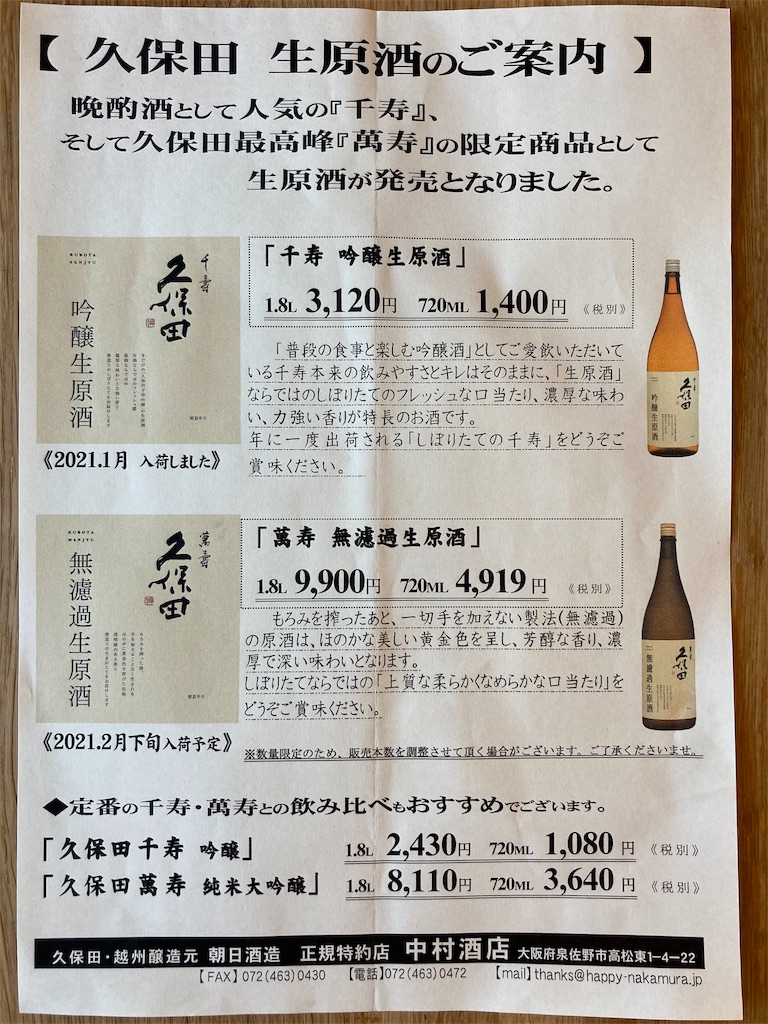 【 久保田 生原酒のご案内 】
晩酌酒として人気の『千寿』、
そして久保田最高峰『萬寿』の限定商品として
生原酒が発売となりました。
KUBOTA
SENJYU
千寿
久保田
吟醸生原酒
《2021.1月 入荷しました》
「千寿 吟醸生原酒」
1.8L 3,120円 720ML 1,400円 《税別》
「普段の食事と楽しむ吟醸酒」としてご愛飲いただいて
いる千寿本来の飲みやすさとキレはそのままに、「生原酒」
ならではのしぼりたてのフレッシュな口当たり、濃厚な味わ
い、力強い香りが特長のお酒です。
年に一度出荷される「しぼりたての千寿」をどうぞご
賞味ください。
久保田
吟醸生原酒
KUBOTA
MANJYU
萬寿
久保田
無濾過生原酒
《2021.2月下旬入荷予定》
「萬寿 無濾過生原酒」
1.8L 9,900円 720ML 4,919円 《税別》
もろみを搾ったあと、一切手を加えない製法(無濾過)
の原酒は、ほのかな美しい黄金色を呈し、芳醇な香り、濃
厚で深い味わいとなります。
しぼりたてならではの「上質な柔らかくなめらかな口当たり」を
どうぞご賞味ください。
久保田
無濾過生原酒
※数量限定のため、販売本数を調整させて頂く場合がございます。ご了承くださいませ。
◆定番の千寿・萬寿との飲み比べもおすすめでございます。
「久保田千寿 吟醸」 1.8L 2,430円 720ML 1,080 円 《税別》
「久保田萬寿 純米大吟醸」 1.8L 8,110円 720ML 3,640 円 《税別》
久保田・越州醸造元 朝日酒造 正規特約店 中村酒店 大阪府泉佐野市高松東1-4-22
【FAX】072(463)0430 【電話】072(463)0472 【mail】thanks@happy-nakamura.jp